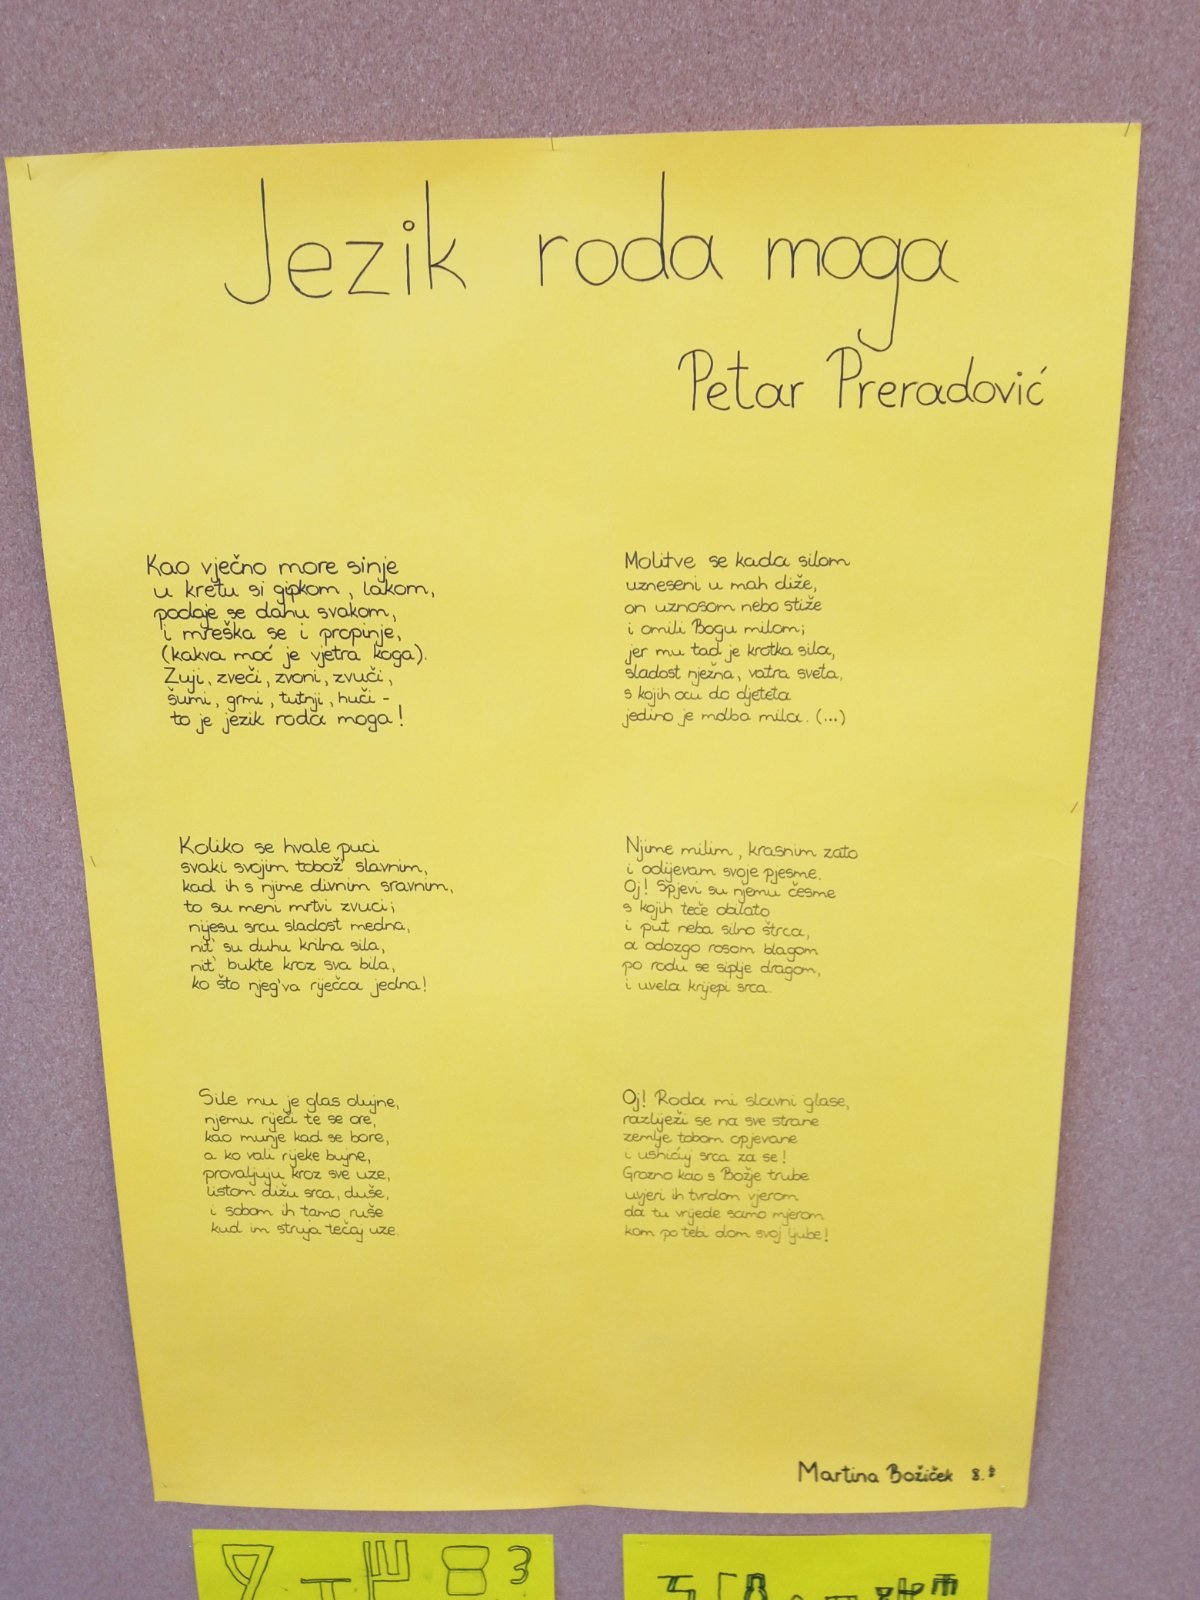 Jezik roda moga
Petar Preradović
Kao vječno more sinje
u kretu si gipkom, lakom,
podaje se dahu svakom,
i mreška se i propinje,
(kakva moć je vjetra koga).
Zuji, zveči, zvoni, zvuči,
šumi, grmi, tutnji, huči -
to je jezik roda moga!
Koliko se hvale puci
svaki svojim tobož' slavnim,
kad ih s njime divnim sravnim,
to su meni mrtvi zvuci;
nijesu srcu sladost medna,
nit' su duhu krilna sila,
nit' bukte kroz sva bila,
ko što njeg'va riječca jedna!
Sile mu je glas dujne,
njemu riječi te se ore,
kao munje kad se bore,
a ko vali rijeke bujne,
provaljuju kroz sve uze,
listom dižu srca, duše,
i sobom ih tamo ruše
kud im struja tečaj uze.
Molitve se kada silom
uzneseni u mah diže,
on uznosom nebo stiže
i omili Bogu milom;
jer mu tad je krotka sila,
sladost nježna, vatra sveta,
s kojih ocu do djeteta
jedino je molba mila. (...)
Njime milim, krasnim zato
i odijevam svoje pjesme.
Oj! Spjevi su njemu česme
s kojih teče obilato
i put neba silno štrca,
a odozgo rosom blagom
po rodu se siplje dragom,
i uvela krijepi srca.
Oj! Roda mi slavni glase,
razliježi se na sve strane
zemlje tobom opjevane
i ushićuj srca za se!
Grozno kao s Božje trube
uvjeri ih tvrdom vjerom
da tu vrijede samo mjerom
kom po tebi dom svoj ljube!
Martina Božiček 8.